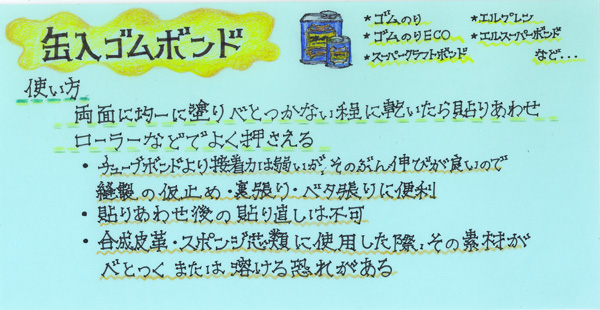 缶入ゴムボンド
*ゴムのり *エルグレン
*ゴムのりECO *エルスーパーボンド
*スーパークラフトボンド など...
使い方
両面に均一に塗りべとつかない程に乾いたら貼りあわせ
ローラーなどでよく押さえる
・チューブボンドより接着力は弱いが、そのぶん伸びが良いので
縫製の仮止め・裏張り・ベタ張りに便利
・貼りあわせ後の貼り直しは不可
・合成皮革・スポンジ芯類に使用した際、その素材が
べとつくまたは溶ける恐れがある